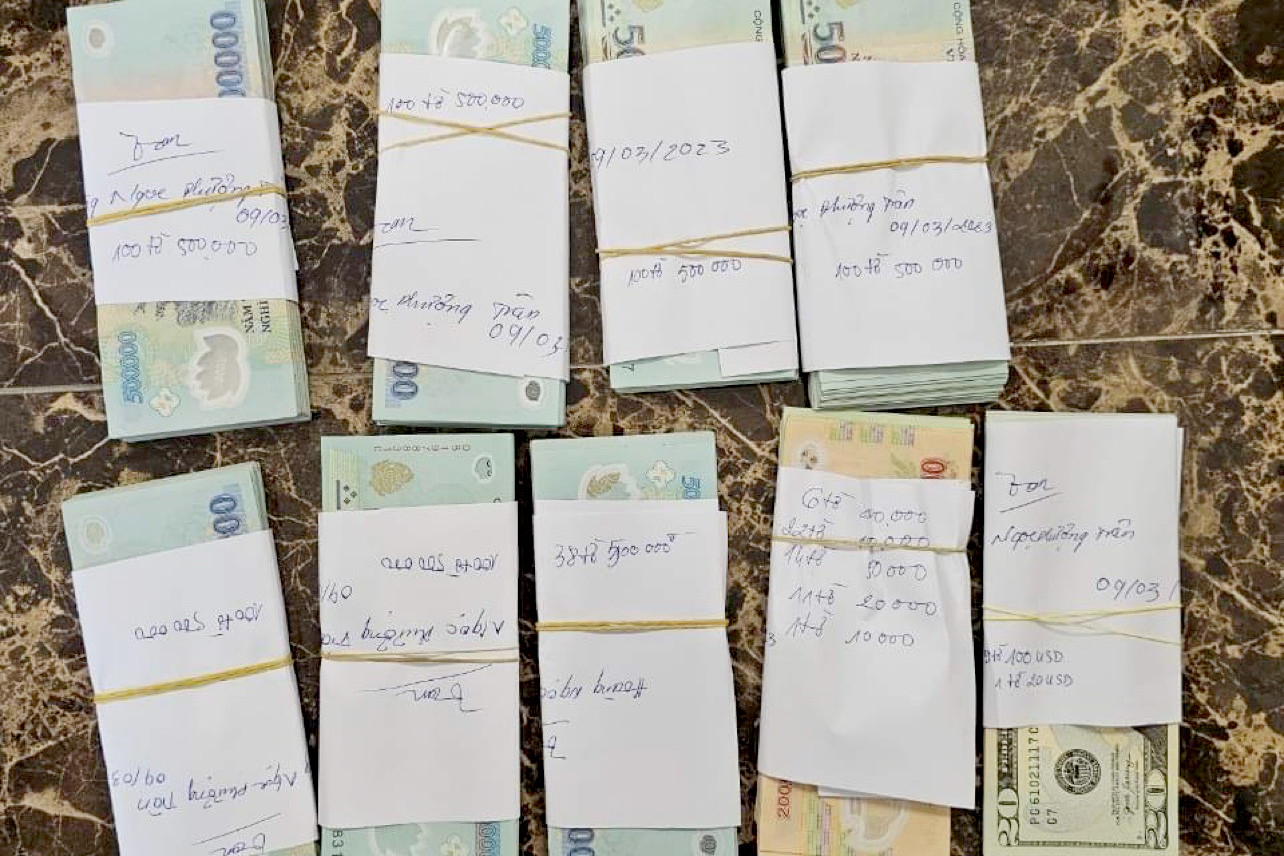 00000
g Ngọc Phượng
09/03
100 tờ 500.000
500000
NĂM
NGHÌ
500
100 tờ 500.000
ọc Phượng Trân
09/03
00
50
CỘNG
9/03/2023
100 tờ 500 000
50
CỘNG HÒA
ọc Phượng Trân
09/03/2023
100 tờ 500 000
00
100 tờ 500 000
Ngọc Phượng Trân
09/03
100 tờ 500 000
09/
Ngọc Phượng Trâ
50
38 tờ 500 000đ
Hoàng Ngọc
0
6 tờ
22 tờ
14 tờ 50 000
11 tờ 20 000
1 tờ 10 000
200
Ngọc Phượng Trân
09/03
9 tờ 100 USD
1 tờ 20 USD
PG61021117C
G7
20
20